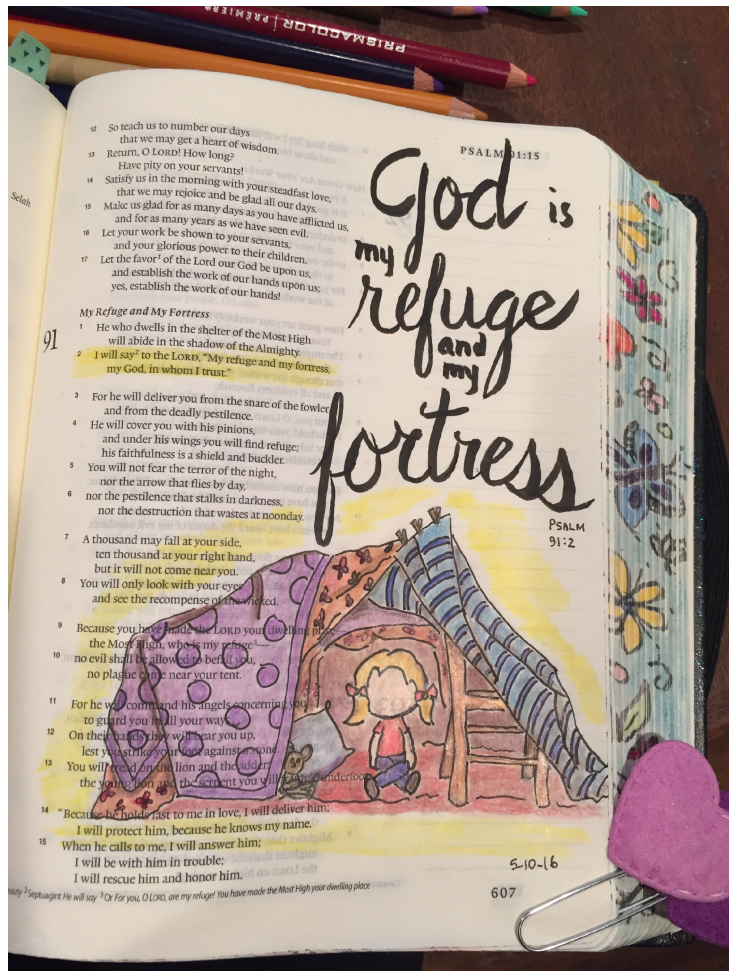 PRISMACOLOR | PREMIER
Selah
PSALM 91:15
12 So teach us to number our days
that we may get a heart of wisdom.
13 Return, O LORD! How long?
Have pity on your servants!
14 Satisfy us in the morning with your steadfast love,
that we may rejoice and be glad all our days.
15 Make us glad for as many days as you have afflicted us,
and for as many years as we have seen evil.
16 Let your work be shown to your servants,
and your glorious power to their children.
17 Let the favor¹ of the Lord our God be upon us,
and establish the work of our hands upon us;
yes, establish the work of our hands!
My Refuge and My Fortress
91
1 He who dwells in the shelter of the Most High
will abide in the shadow of the Almighty.
2 I will say² to the LORD, “My refuge and my fortress,
my God, in whom I trust.”
3 For he will deliver you from the snare of the fowler
and from the deadly pestilence.
4 He will cover you with his pinions,
and under his wings you will find refuge;
his faithfulness is a shield and buckler.
5 You will not fear the terror of the night,
nor the arrow that flies by day,
6 nor the pestilence that stalks in darkness,
nor the destruction that wastes at noonday.
7 A thousand may fall at your side,
ten thousand at your right hand,
but it will not come near you.
8 You will only look with your eyes
and see the recompense of the wicked.
9 Because you have made the LORD your dwelling place
the Most High, who is my refuge³—
10 no evil shall be allowed to befall you,
no plague come near your tent.
11 For he will command his angels concerning you
to guard you in all your ways.
12 On their hands they will bear you up,
lest you strike your foot against a stone.
13 You will tread on the lion and the adder;
the young lion and the serpent you will underfoot
14 “Because he holds fast to me in love, I will deliver him;
I will protect him, because he knows my name.
15 When he calls to me, I will answer him;
I will be with him in trouble;
I will rescue him and honor him.
²Septuagint He will say ³Or For you, O LORD, are my refuge! You have made the Most High your dwelling place
God is
my
refuge
and
my
fortress
PSALM
91:2
5-10-16
607